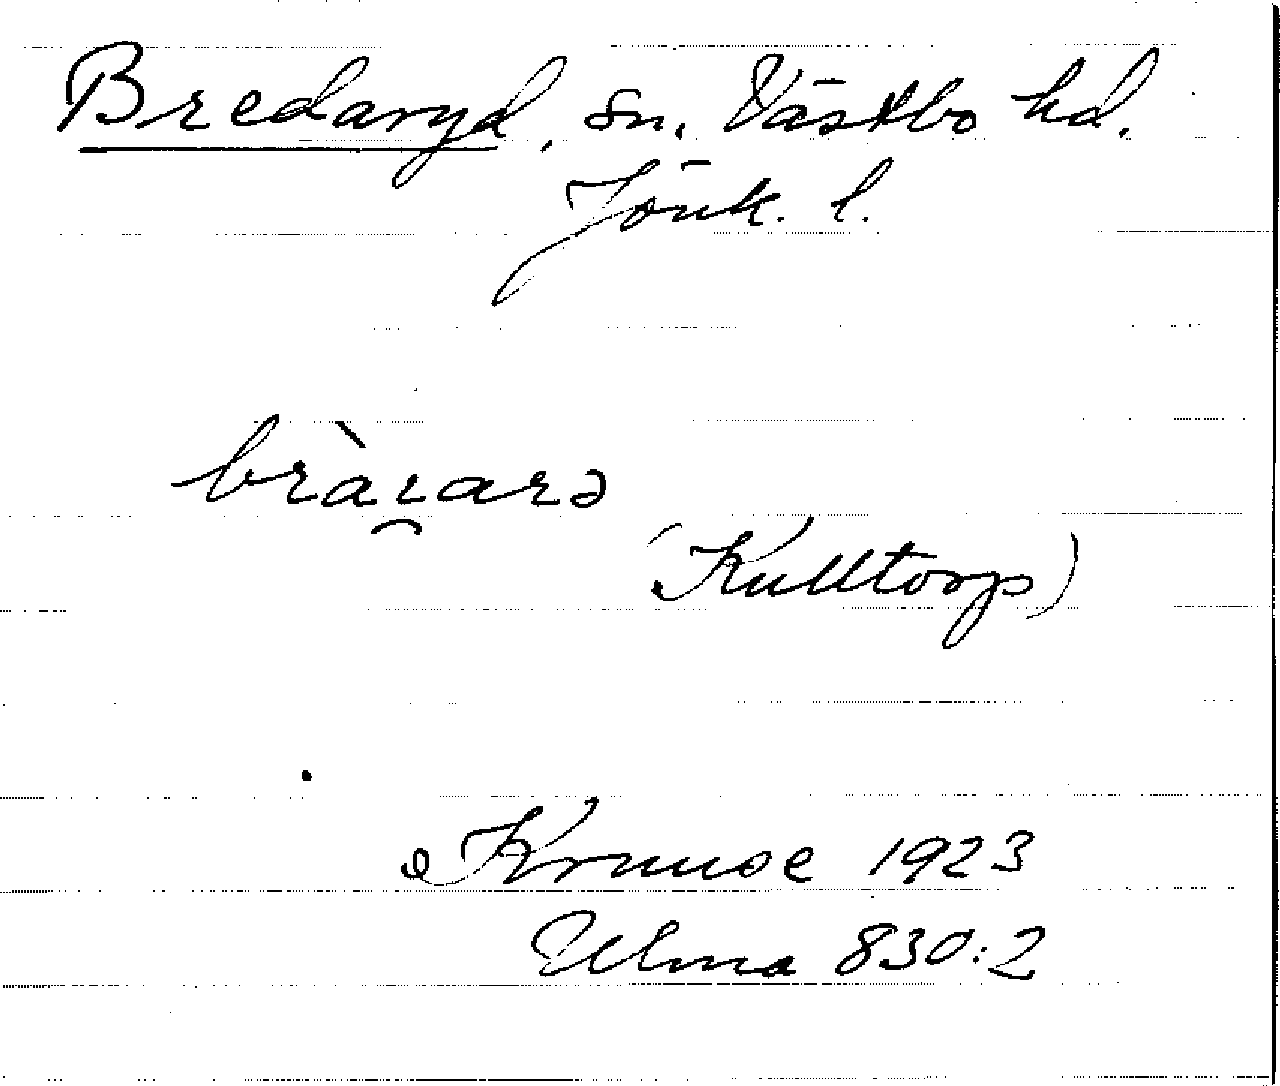 Bredaryd, sn. Västbo hd.
Jönk. l.
bràrarə
(Kulltorp)
Kruuse 1923
Ulma 830:2